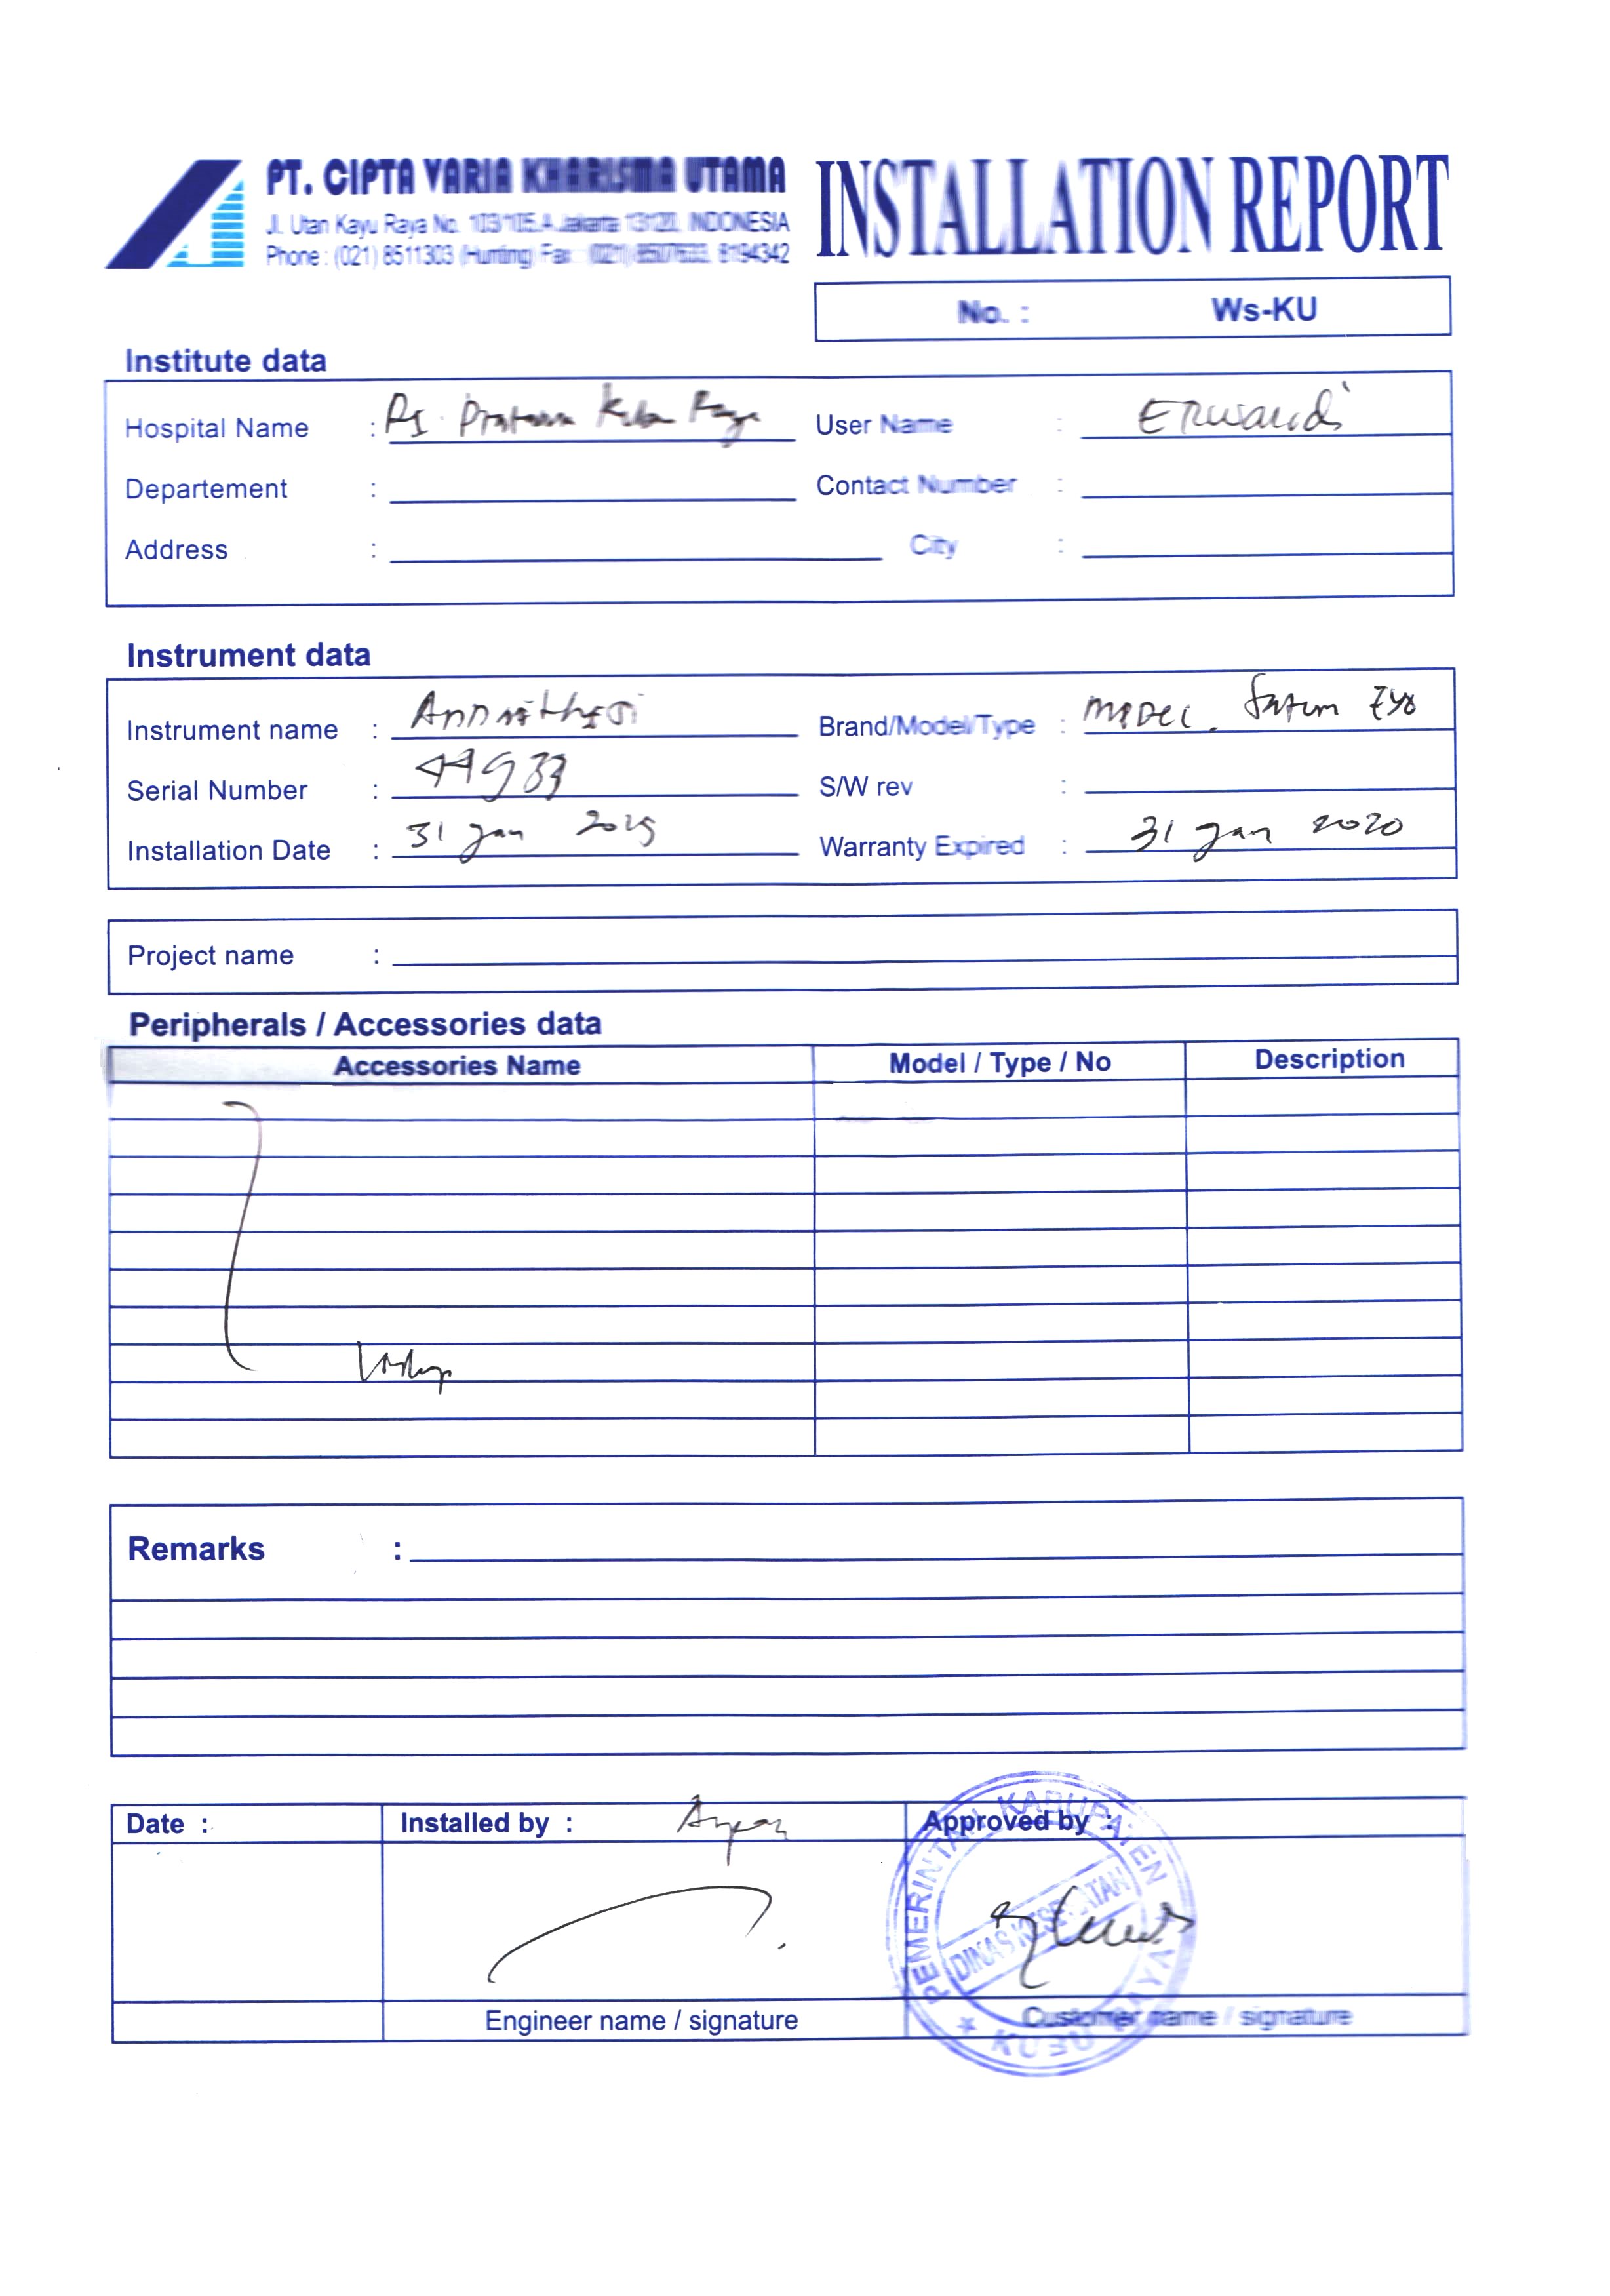 PT. CIPTA VARIA KHARISMA UTAMA
Jl. Utan Kayu Raya No. 103/105.A Jakarta 13120, INDONESIA
Phone : (021) 8511303 (Hunting) Fax : (021) 8507633, 8194342
INSTALLATION REPORT
No. : Ws-KU
Institute data
Hospital Name : RS. Pratama Kubu Raya
User Name : ERwandi
Departement :
Contact Number :
Address :
City :
Instrument data
Instrument name :
Brand/Model/Type : MODEL.
Serial Number : 44933
S/W rev :
Installation Date : 31 Jan
Warranty Expired : 31 Jan 2020
Project name :
Peripherals / Accessories data
Accessories Name Model / Type / No Description
Remarks :
Date : Installed by : Approved by :
PEMERINTAH KABUPATEN
DINAS KESEHATAN
KUBU RAYA
Engineer name / signature Customer name / signature